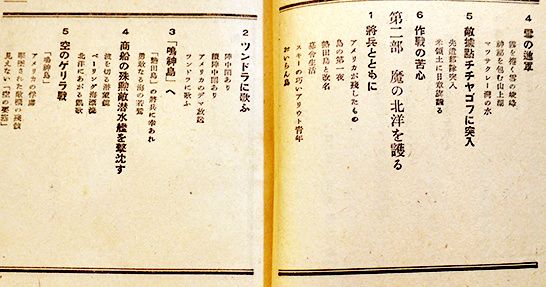 4 雪の進軍
雪を衝く雪の峻峰
神秘を包む山上湖
マツサクレー灣の水
5 敵據點チチヤゴフに突入
先遣部隊突入
米領土に日章旗飜る
6 作戰の苦心
第二部 魔の北洋を護る
1 將兵とともに
アメリカが殘したもの
島の第一夜
熱田島と改名
幕舍生活
スキーの巧いアリウト靑年
おいらん島
2 ツンドラに歌ふ
陣中閑あり
アメリカのデマ放送
續陣中閑あり
ツンドラに歌ふ
3 「鳴神島」へ
「熱田島」の將兵に幸あれ
勇敢なる海の若鷲
4 商船の殊勳敵潛水艦を擊沈す
波を切る潛望鏡
ベーリング海漂流
北洋にあがる凱歌
5 空のゲリラ戰
「鳴神島」
アメリカの俘虜
擊墜された敵機の殘骸
見えない「空の要塞」